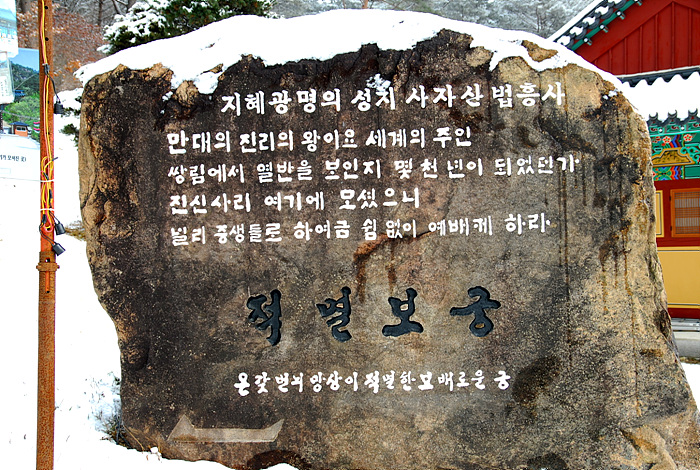 지혜광명의 성지 사자산 법흥사
만대의 진리의 왕이요 세계의 주인
쌍림에서 열반을 보인지 몇 천 년이 되었던가
진신사리 여기에 모셨으니
널리 중생들로 하여금 쉼 없이 예배케 하리
적멸보궁
온갖 번뇌 망상이 적멸한 보배로운 궁